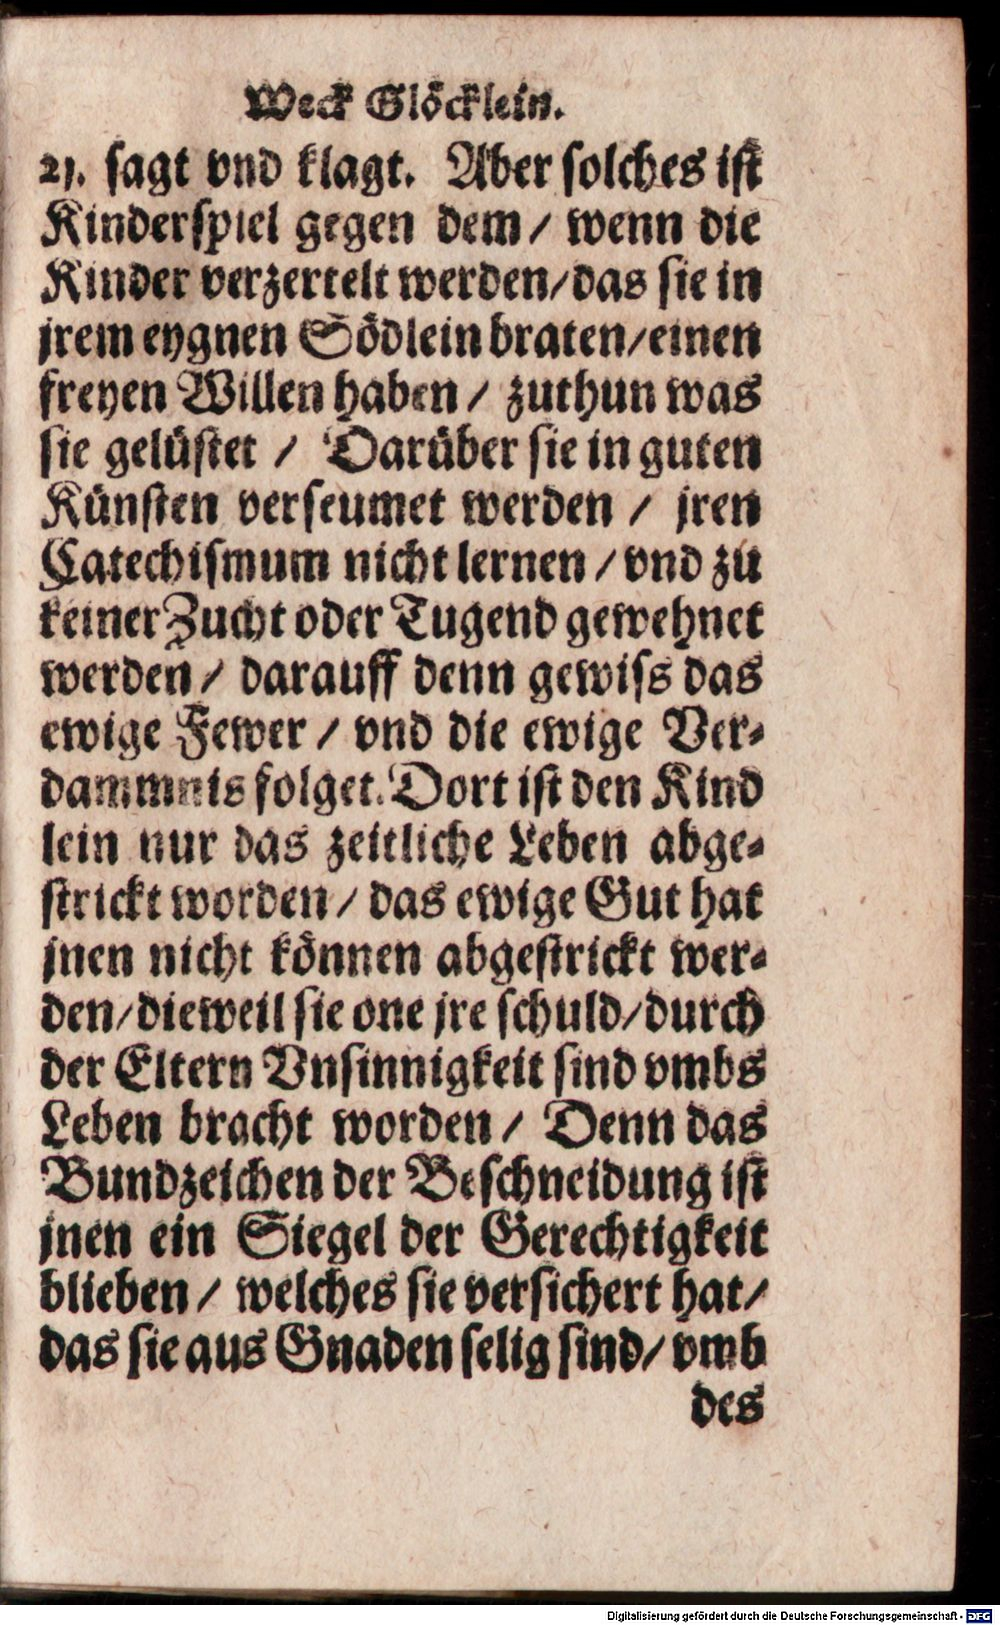 Weck Glöcklein.
21. sagt vnd klagt. Aber solches ist
Kinderspiel gegen dem / wenn die
Kinder verzertelt werden/das sie in
jrem eygnen Södlein braten/einen
freyen Willen haben / zuthun was
sie gelüstet / Darüber sie in guten
Künsten verseumet werden / jren
Catechismum nicht lernen / vnd zu
keiner Zucht oder Tugend gewehnet
werden / darauff denn gewiss das
ewige Fewer / vnd die ewige Ver-
dammnis folget. Dort ist den Kind
lein nur das zeitliche Leben abge-
strickt worden / das ewige Gut hat
jnen nicht können abgestrickt wer-
den/dieweil sie one jre schuld/durch
der Eltern Vnsinnigkeit sind vmbs
Leben bracht worden / Denn das
Bundzeichen der Beschneidung ist
jnen ein Siegel der Gerechtigkeit
blieben / welches sie versichert hat/
das sie aus Gnaden selig sind/ vmb
des
Digitalisierung gefördert durch die Deutsche Forschungsgemeinschaft - DFG